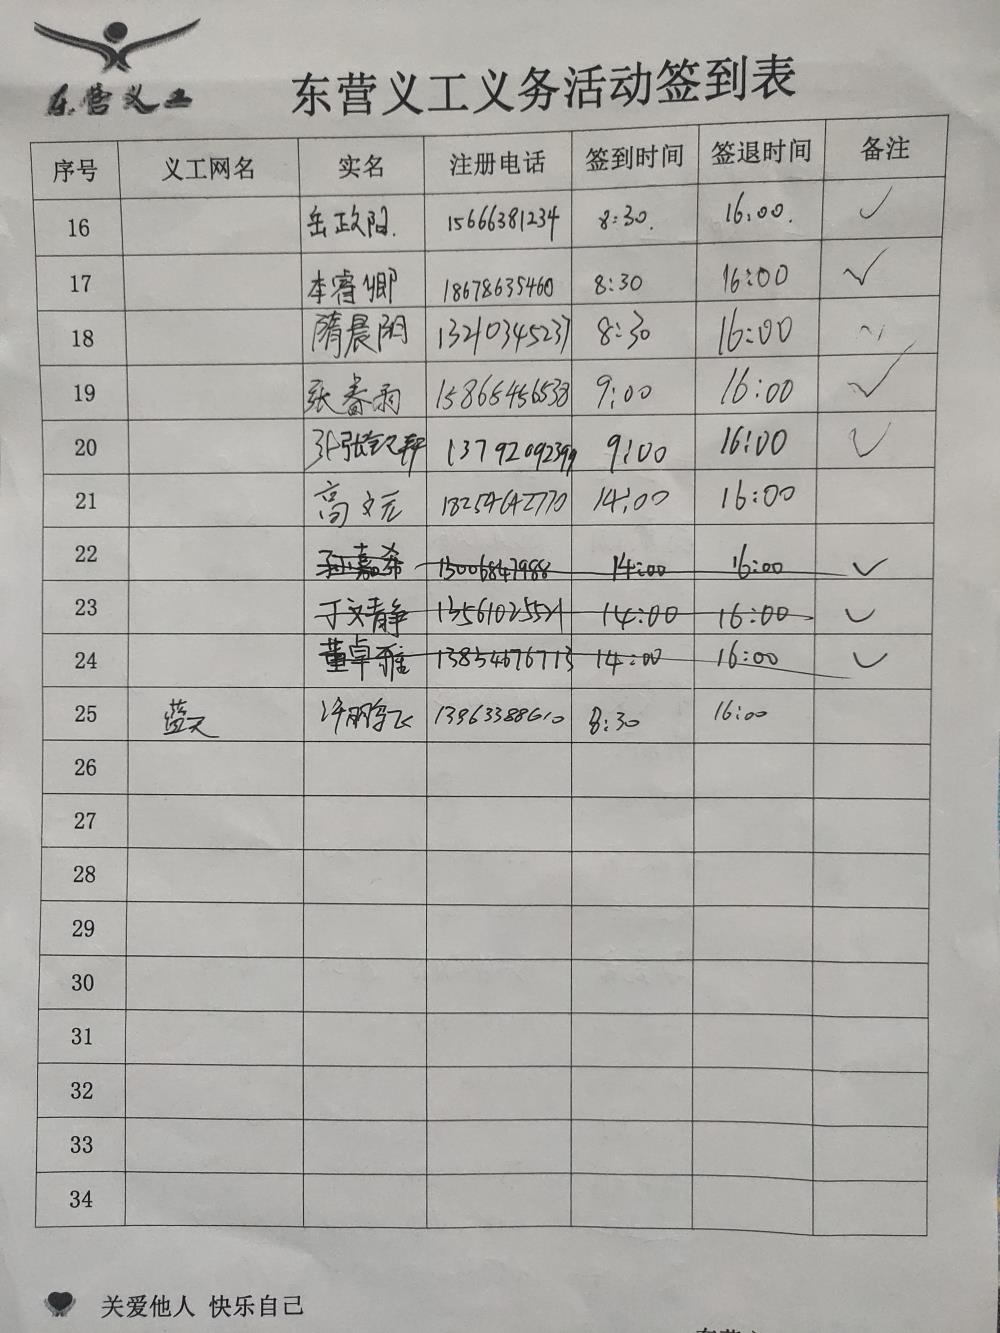 东营义工
东营义工义务活动签到表
序号 义工网名 实名 注册电话 签到时间 签退时间 备注
16 岳政阳. 15666381234 8:30. 16:00. ✓
17 李睿卿 18678635460 8:30 16:00 ✓
18 隋晨阳 13210345237 8:30 16:00
19 张春雨 15865456538 9:00 16:00 ✓
20 13792092399 9:00 16:00 ✓
21 高文元 18254642770 14:00 16:00
22 孙嘉希 15006847988 14:00 16:00 ✓
23 于文静 13561025521 14:00 16:00 ✓
24 董卓雅 13854676713 14:00 16:00 ✓
25 蓝天 许鹏飞 13963388610 8:30 16:00
26
27
28
29
30
31
32
33
34
关爱他人 快乐自己